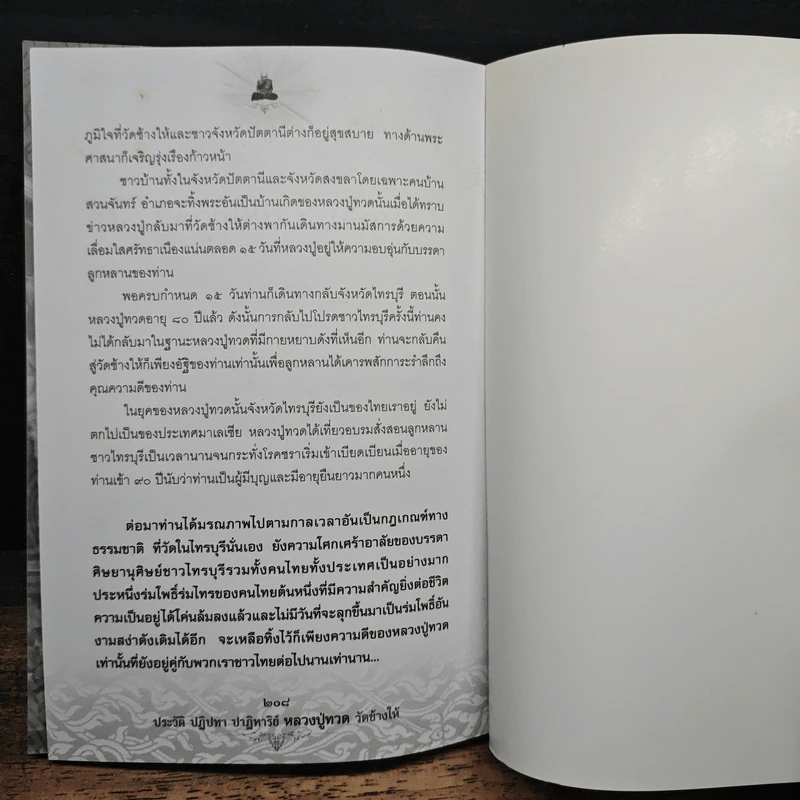 ภูมิใจที่วัดช้างให้และชาวจังหวัดปัตตานีต่างก็อยู่สุขสบาย ทางด้านพระ
ศาสนาก็เจริญรุ่งเรืองก้าวหน้า
ชาวบ้านทั้งในจังหวัดปัตตานีและจังหวัดสงขลาโดยเฉพาะคนบ้าน
สวนจันทร์ อำเภอจะทิ้งพระอันเป็นบ้านเกิดของหลวงปู่ทวดนั้นเมื่อได้ทราบ
ข่าวหลวงปู่กลับมาที่วัดช้างให้ต่างพากันเดินทางมานมัสการด้วยความ
เลื่อมใสศรัทธาเนืองแน่นตลอด ๑๕ วันที่หลวงปู่อยู่ให้ความอบอุ่นกับบรรดา
ลูกหลานของท่าน
พอครบกำหนด ๑๕ วันท่านก็เดินทางกลับจังหวัดไทรบุรี ตอนนั้น
หลวงปู่ทวดอายุ ๘๐ ปีแล้ว ดังนั้นการกลับไปโปรดชาวไทรบุรีครั้งนี้ท่านคง
ไม่ได้กลับมาในฐานะหลวงปู่ทวดที่มีกายหยาบดังที่เห็นอีก ท่านจะกลับคืน
สู่วัดช้างให้ก็เพียงอัฐิของท่านเท่านั้นเพื่อลูกหลานได้เคารพสักการะรำลึกถึง
คุณความดีของท่าน
ในยุคของหลวงปู่ทวดนั้นจังหวัดไทรบุรียังเป็นของไทยเราอยู่ ยังไม่
ตกไปเป็นของประเทศมาเลเซีย หลวงปู่ทวดได้เที่ยวอบรมสั่งสอนลูกหลาน
ชาวไทรบุรีเป็นเวลานานจนกระทั่งโรคชราเริ่มเข้าเบียดเบียนเมื่ออายุของ
ท่านเข้า ๙๐ ปีนับว่าท่านเป็นผู้มีบุญและมีอายุยืนยาวมากคนหนึ่ง
ต่อมาท่านได้มรณภาพไปตามกาลเวลาอันเป็นกฎเกณฑ์ทาง
ธรรมชาติ ที่วัดในไทรบุรีนั่นเอง ยังความโศกเศร้าอาลัยของบรรดา
ศิษยานุศิษย์ชาวไทรบุรีรวมทั้งคนไทยทั้งประเทศเป็นอย่างมาก
ประหนึ่งร่มโพธิ์ร่มไทรของคนไทยต้นหนึ่งที่มีความสำคัญยิ่งต่อชีวิต
ความเป็นอยู่ได้โค่นล้มลงแล้วและไม่มีวันที่จะลุกขึ้นมาเป็นร่มโพธิ์อัน
งามสง่าดังเดิมได้อีก จะเหลือทิ้งไว้ก็เพียงความดีของหลวงปู่ทวด
เท่านั้นที่ยังอยู่คู่กับพวกเราชาวไทยต่อไปนานเท่านาน...
๒๐๘
ประวัติ ปฏิปทา ปาฏิหาริย์ หลวงปู่ทวด วัดช้างให้